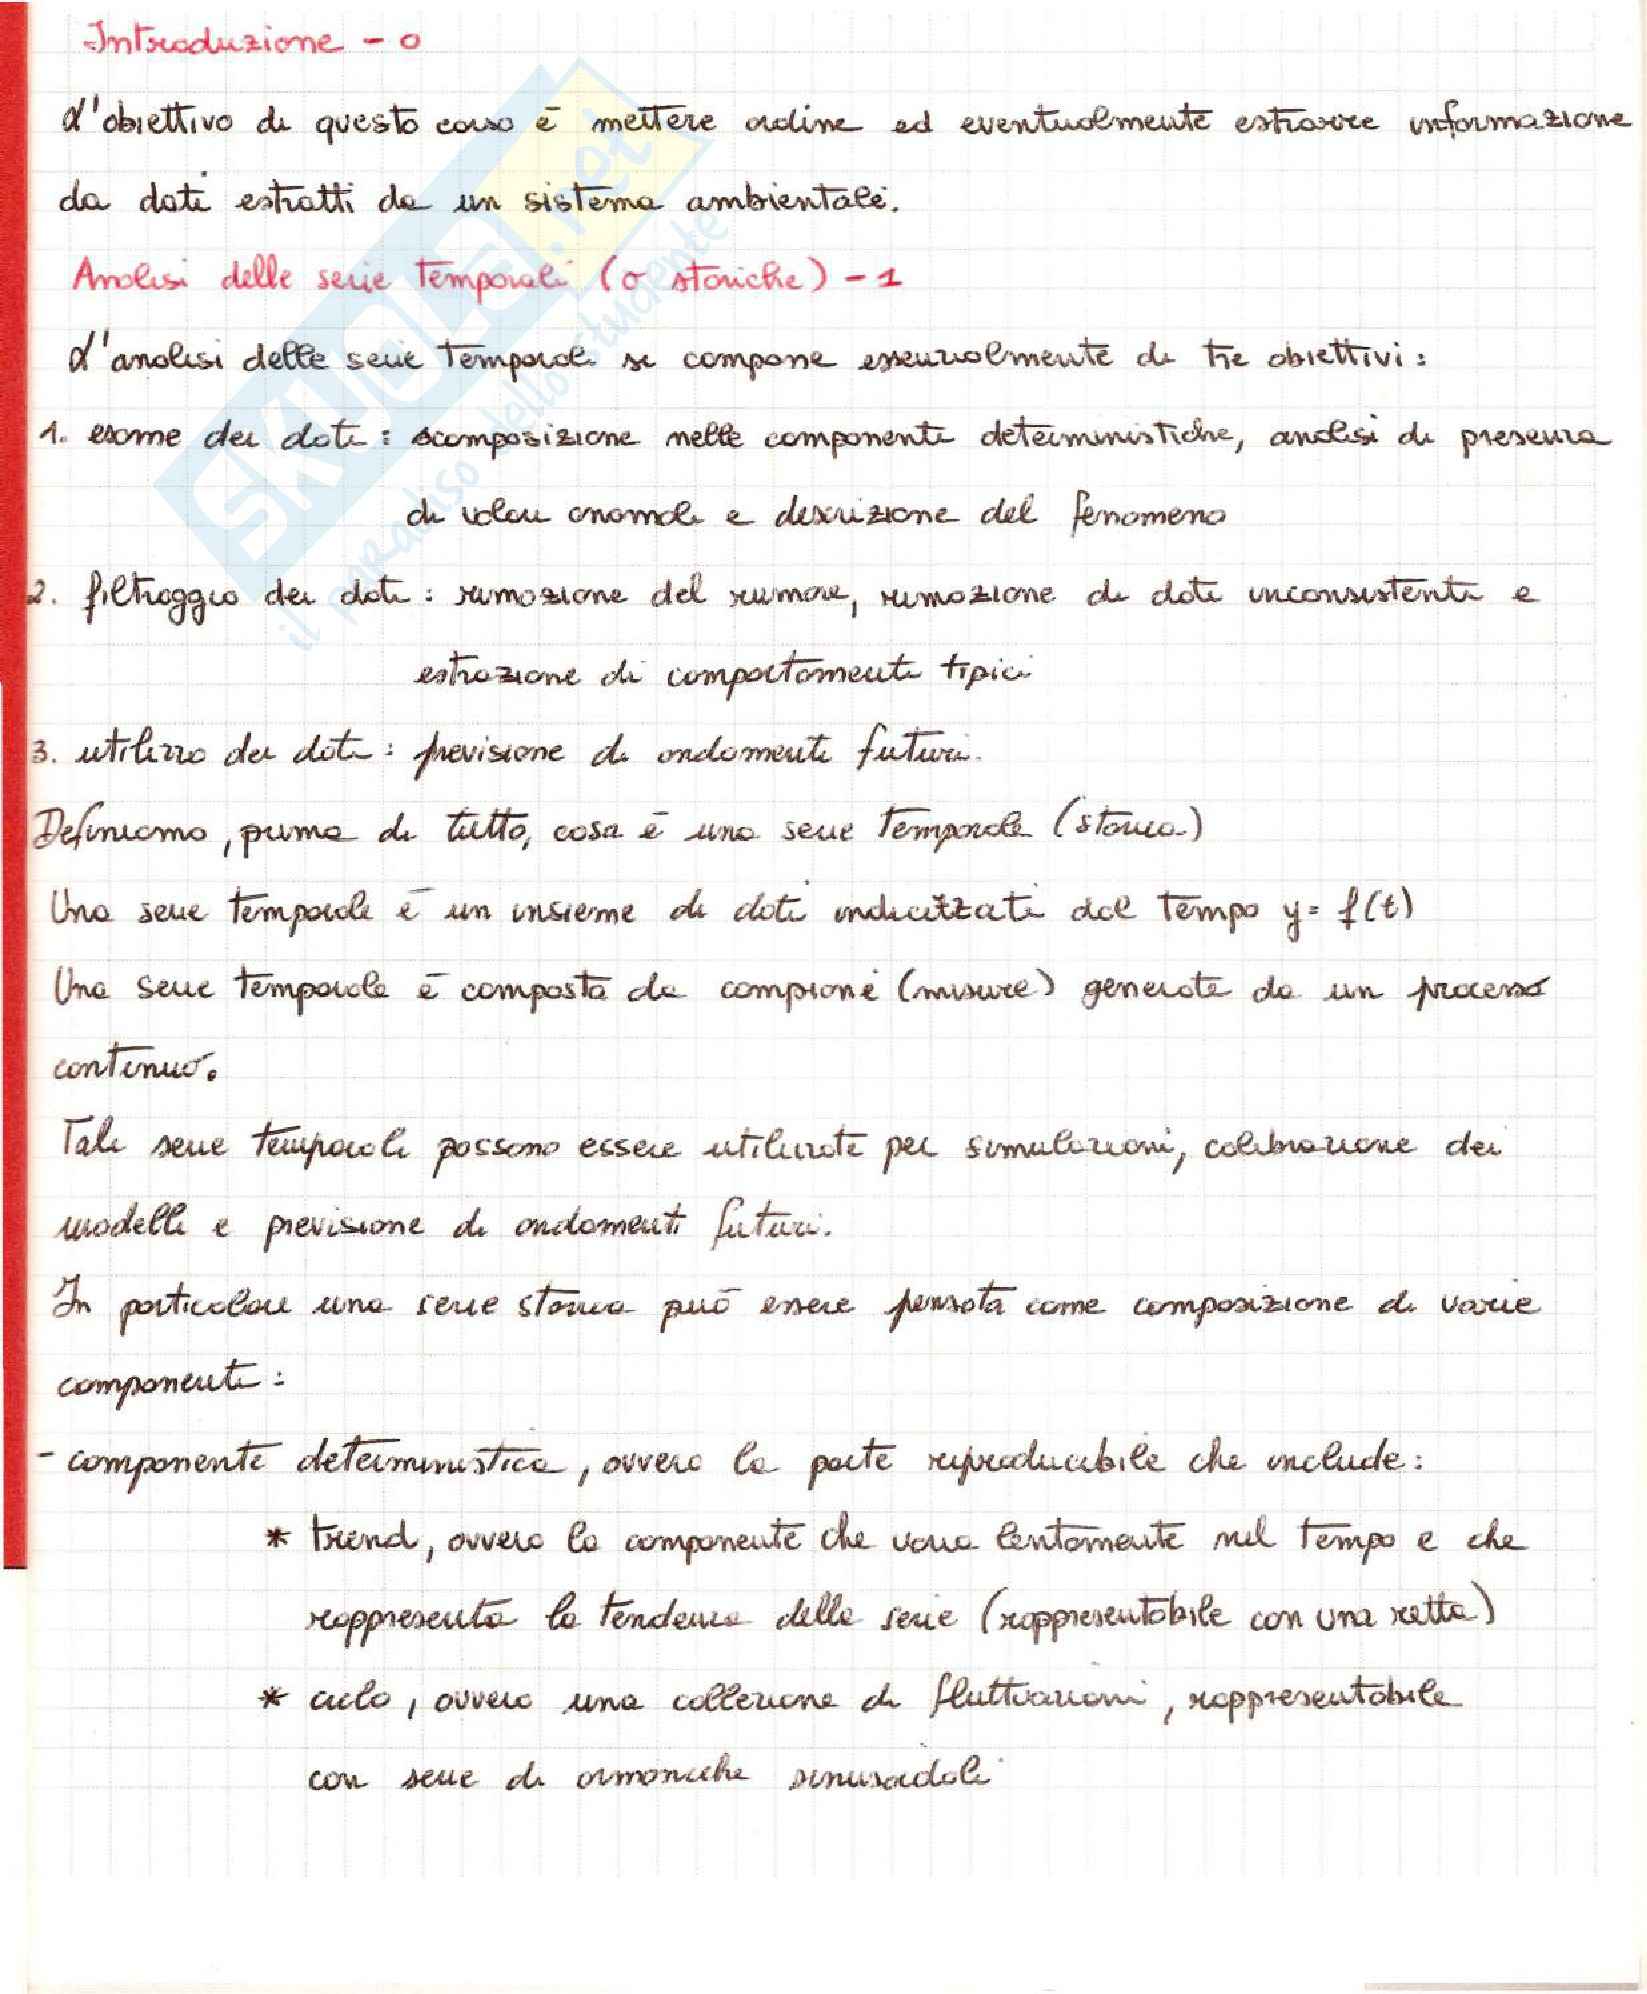 Introduzione - 0
L'obiettivo di questo corso è mettere ordine ed eventualmente estrarre informazione
da dati estratti da un sistema ambientale.
Analisi delle serie temporali (o storiche) - 1
L'analisi delle serie temporali si compone essenzialmente di tre obiettivi:
1. esame dei dati: scomposizione nelle componenti deterministiche, analisi di presenza
di valori anomali e descrizione del fenomeno
2. filtraggio dei dati: rimozione del rumore, rimozione di dati inconsistenti e
estrazione di comportamenti tipici
3. utilizzo dei dati: previsione di andamenti futuri.
Definiamo, prima di tutto, cosa è una serie temporale (storica)
Una serie temporale è un insieme di dati indicizzati dal tempo y = f(t)
Una serie temporale è composta da campioni (misure) generate da un processo
continuo.
Tali serie temporali possono essere utilizzate per simulazioni, calibrazione dei
modelli e previsione di andamenti futuri.
In particolare una serie storica può essere pensata come composizione di varie
componenti:
- componente deterministica, ovvero la parte riproducibile che include:
* trend, ovvero la componente che varia lentamente nel tempo e che
rappresenta la tendenza della serie (rappresentabile con una retta)
* ciclo, ovvero una collezione di fluttuazioni, rappresentabile
con serie di armoniche sinusoidali
SKUOLA.net
il paradiso dello studente